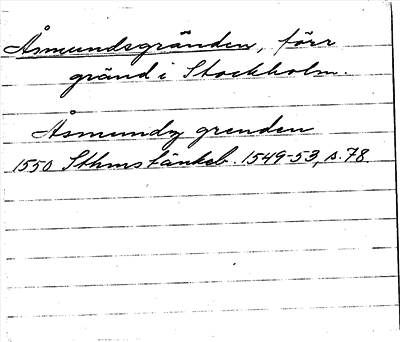 Åsmundsgränden, förr
gränd i Stockholm.
Åsmundz grenden
1550 Sthms tänkeb. 1549-53, s. 78.